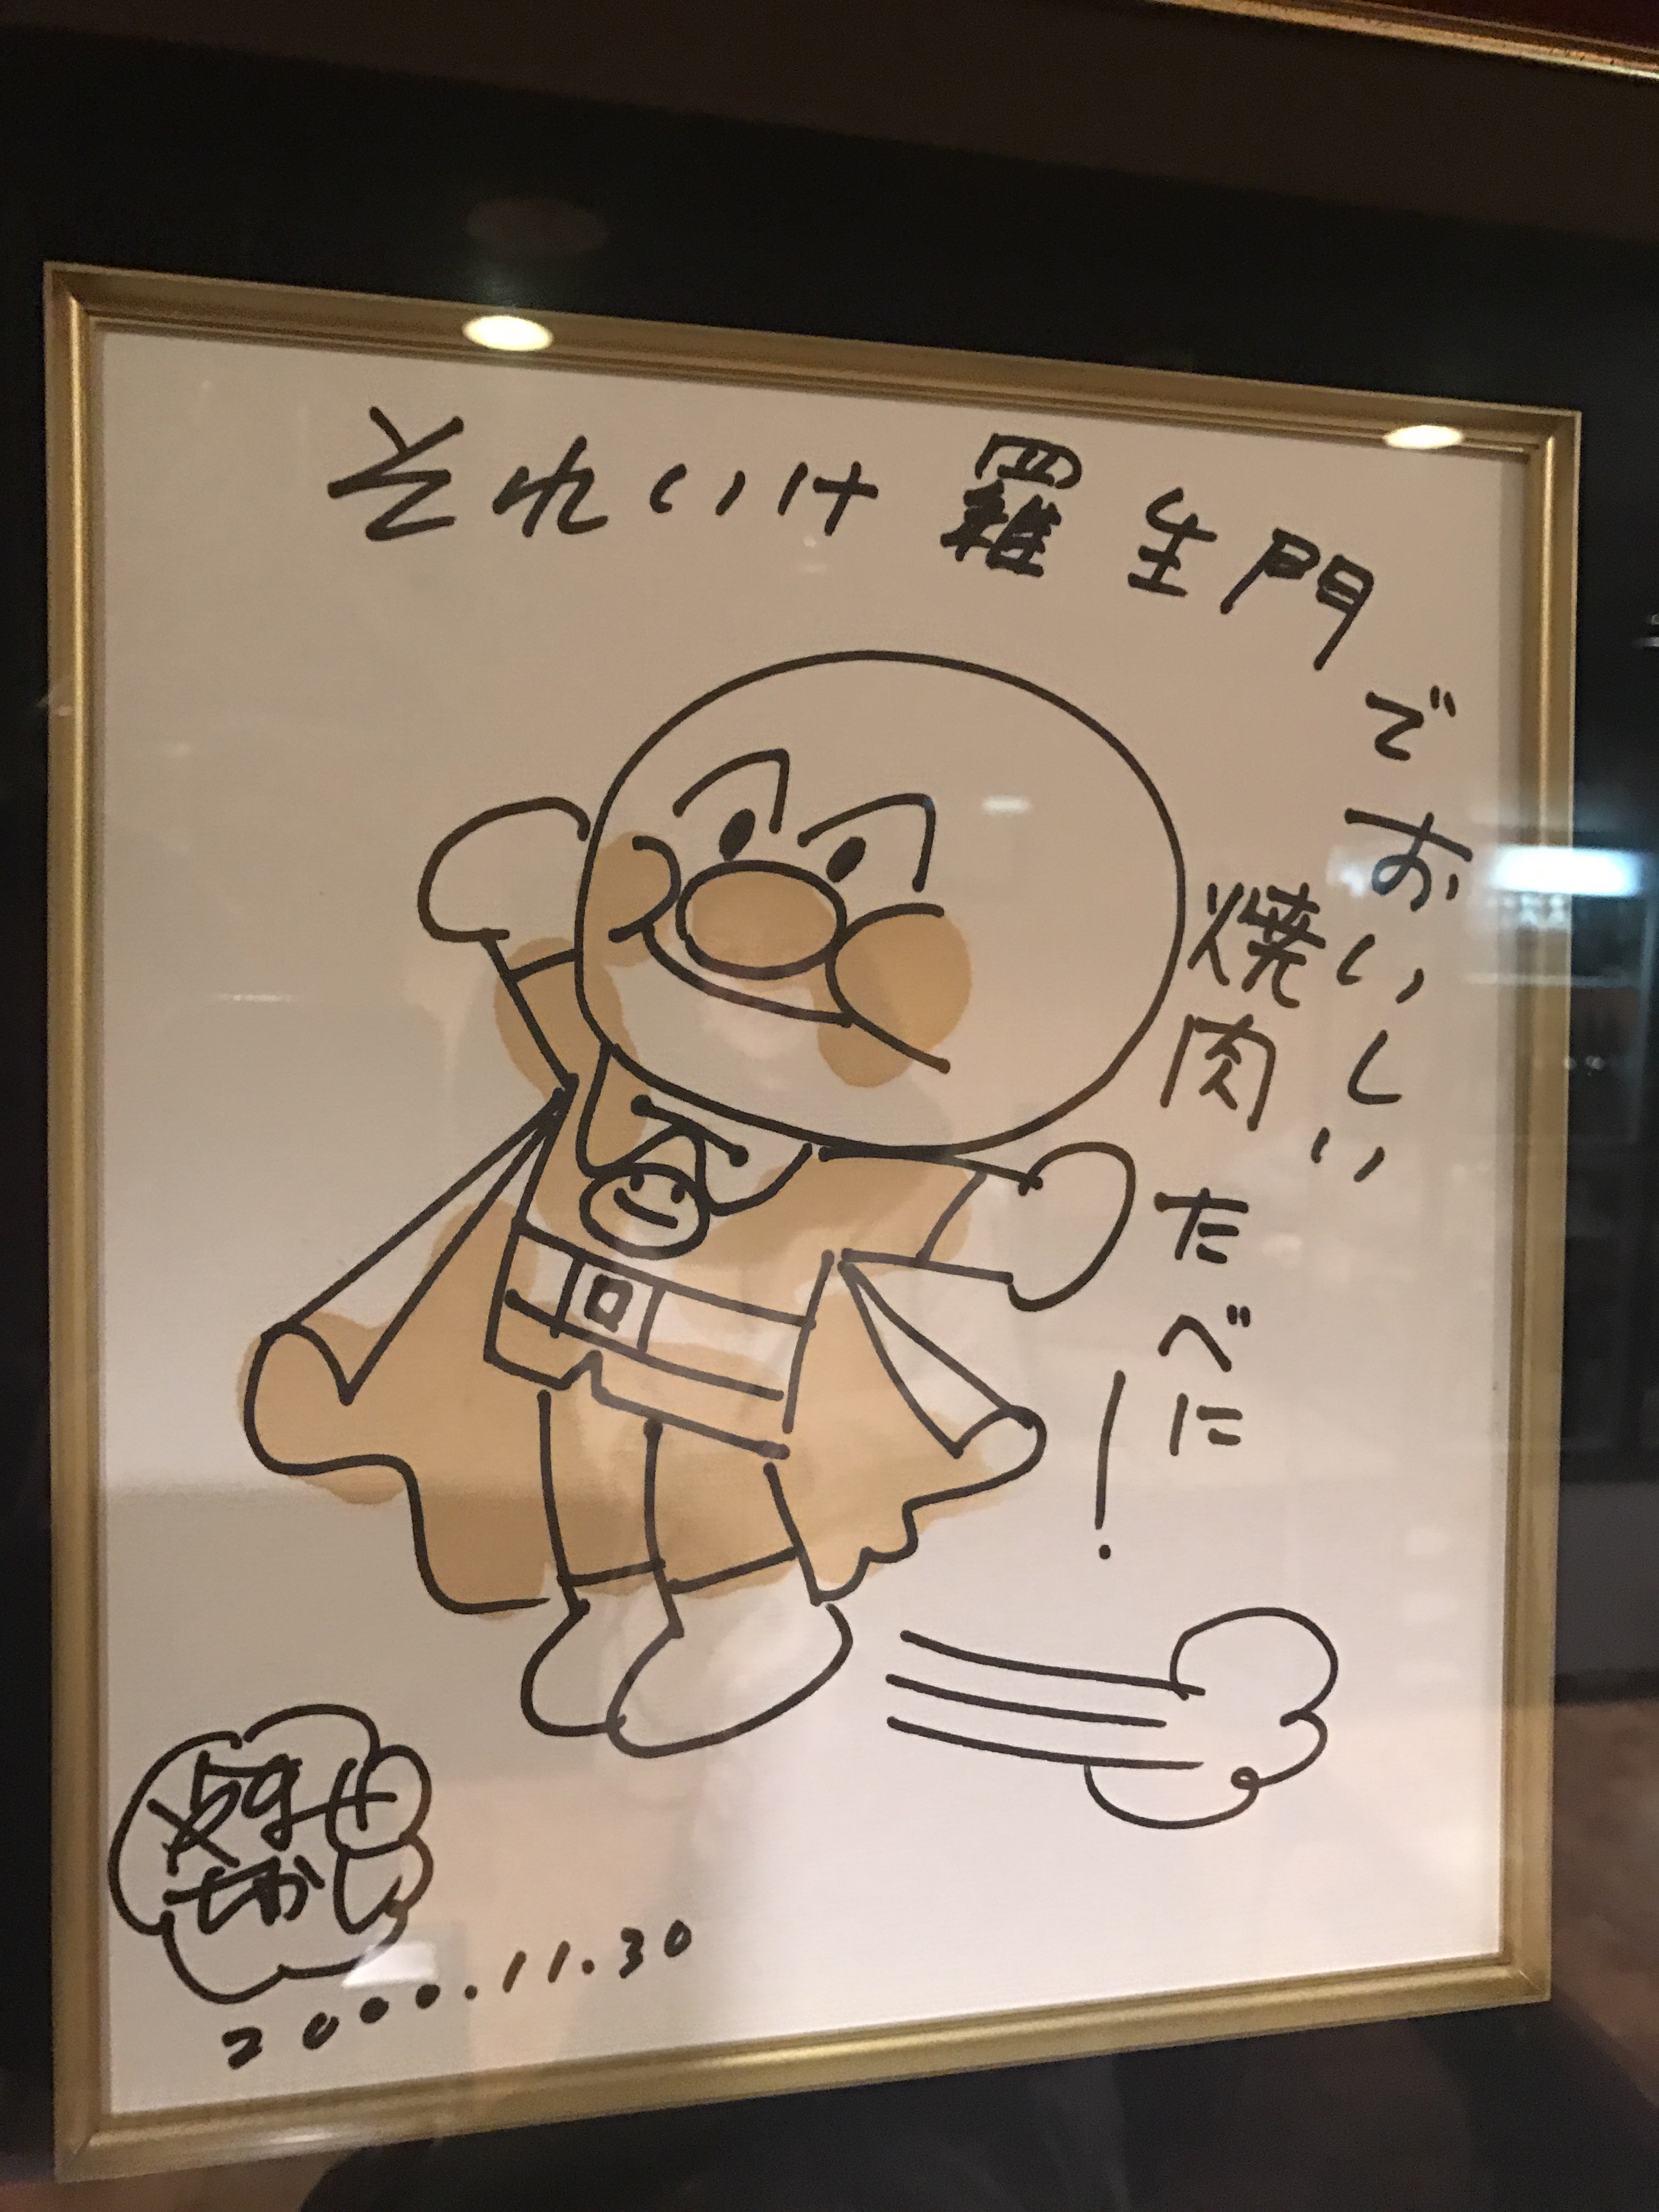 それいけ羅生門
でおいしい
焼肉たべに!
やなせ
たかし
2000.11.30